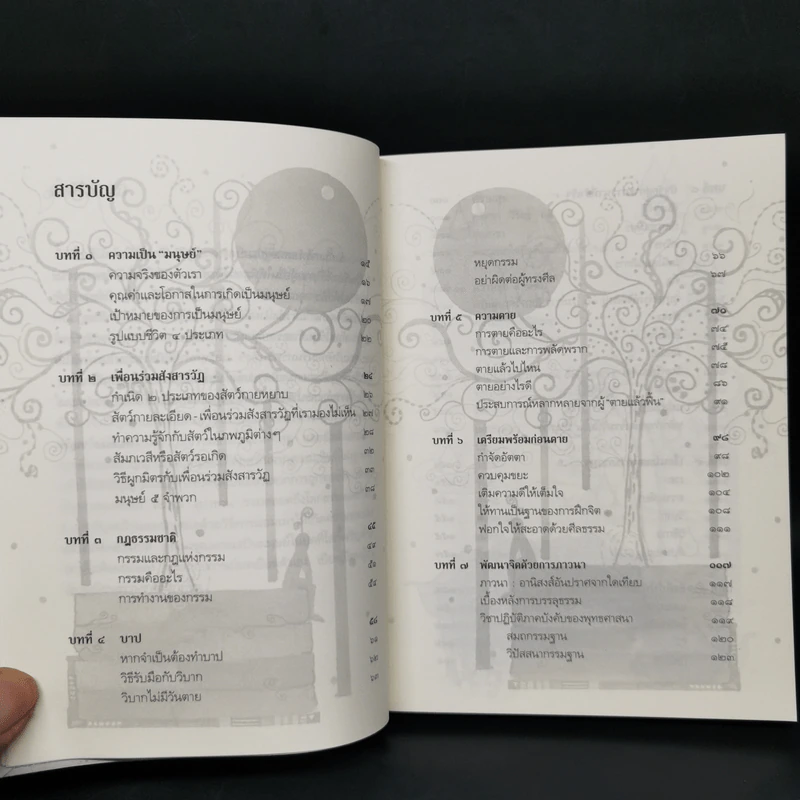 สารบัญ
บทที่ ๑ ความเป็น "มนุษย์"
ความจริงของตัวเรา ๑๕
คุณค่าและโอกาสในการเกิดเป็นมนุษย์ ๑๖
เป้าหมายของการเป็นมนุษย์ ๑๗
รูปแบบชีวิต ๔ ประเภท ๒๐
๒๒
บทที่ ๒ เพื่อนร่วมสังสารวัฏ ๒๔
กำเนิด ๒ ประเภทของสัตว์กายหยาบ ๒๖
สัตว์กายละเอียด - เพื่อนร่วมสังสารวัฏที่เรามองไม่เห็น ๒๗
ทำความรู้จักกับสัตว์ในภพภูมิต่างๆ ๒๘
สัมภเวสีหรือสัตว์รอเกิด ๓๒
วิธีผูกมิตรกับเพื่อนร่วมสังสารวัฏ ๓๓
มนุษย์ ๕ จำพวก ๓๘
บทที่ ๓ กฎธรรมชาติ ๔๕
กรรมและกฎแห่งกรรม ๔๙
กรรมคืออะไร ๕๑
การทำงานของกรรม ๕๔
บทที่ ๔ บาป ๕๘
หากจำเป็นต้องทำบาป ๖๑
วิธีรับมือกับวิบาก ๖๒
วิบากไม่มีวันตาย ๖๓
หยุดกรรม ๖๖
อย่าผิดต่อผู้ทรงศีล ๖๗
บทที่ ๕ ความตาย ๗๐
การตายคืออะไร ๗๔
การตายและการพลัดพราก ๗๕
ตายแล้วไปไหน ๗๘
ตายอย่างไรดี ๘๖
ประสบการณ์หลากหลายจากผู้ "ตายแล้วฟื้น" ๙๑
บทที่ ๖ เตรียมพร้อมก่อนตาย ๙๔
กำจัดอัตตา ๙๘
ควบคุมขยะ ๑๐๒
เติมความดีให้เต็มใจ ๑๐๔
ให้ทานเป็นฐานของการฝึกจิต ๑๐๘
ฟอกใจให้สะอาดด้วยศีลธรรม ๑๑๑
บทที่ ๗ พัฒนาจิตด้วยการภาวนา ๑๑๗
ภาวนา : อานิสงส์อันปราศจากใดเทียบ ๑๑๗
เบื้องหลังการบรรลุธรรม ๑๑๘
วิชาปฏิบัติภาคบังคับของพุทธศาสนา ๑๑๙
สมถกรรมฐาน ๑๒๐
วิปัสสนากรรมฐาน ๑๒๓